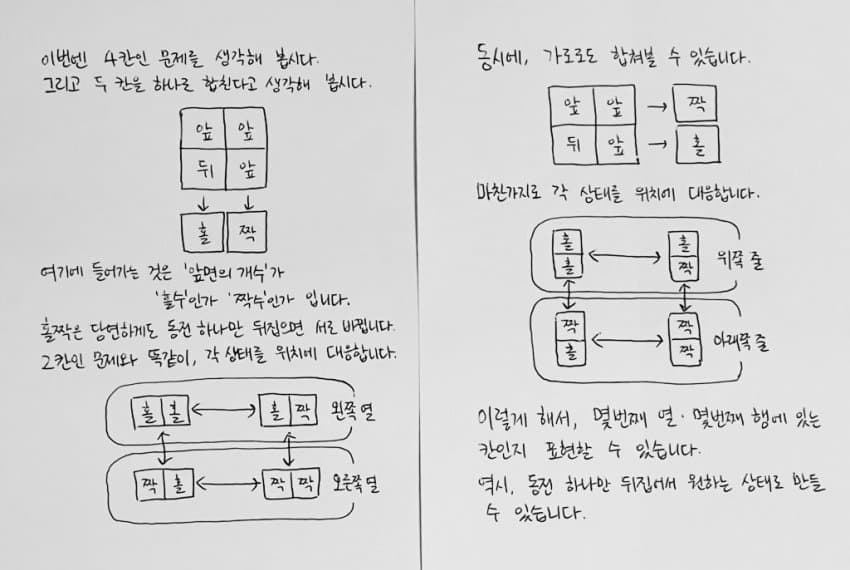 이번엔 4칸인 문제를 생각해 봅시다.
그리고 두 칸을 하나로 합친다고 생각해 봅시다.
앞 앞
뒤 앞
↓ ↓
홀 짝
여기에 들어가는 것은 '앞면의 개수'가
'홀수'인가 '짝수'인가 입니다.
홀짝은 당연하게도 동전 하나만 뒤집으면 서로 바뀝니다.
2칸인 문제와 똑같이, 각 상태를 위치에 대응합니다.
홀 홀 ↔ 홀 짝 왼쪽 열
↕ ↕
짝 홀 ↔ 짝 짝 오른쪽 열
동시에, 가로로도 합쳐볼 수 있습니다.
앞 앞 → 짝
뒤 앞 → 홀
마찬가지로 각 상태를 위치에 대응합니다.
홀 홀
홀 ↔ 짝 위쪽 줄
↕ ↕
짝 짝
홀 ↔ 짝 아래쪽 줄
이렇게 해서, 몇번째 열·몇번째 행에 있는
칸인지 표현할 수 있습니다.
역시, 동전 하나만 뒤집어서 원하는 상태로 만들
수 있습니다.